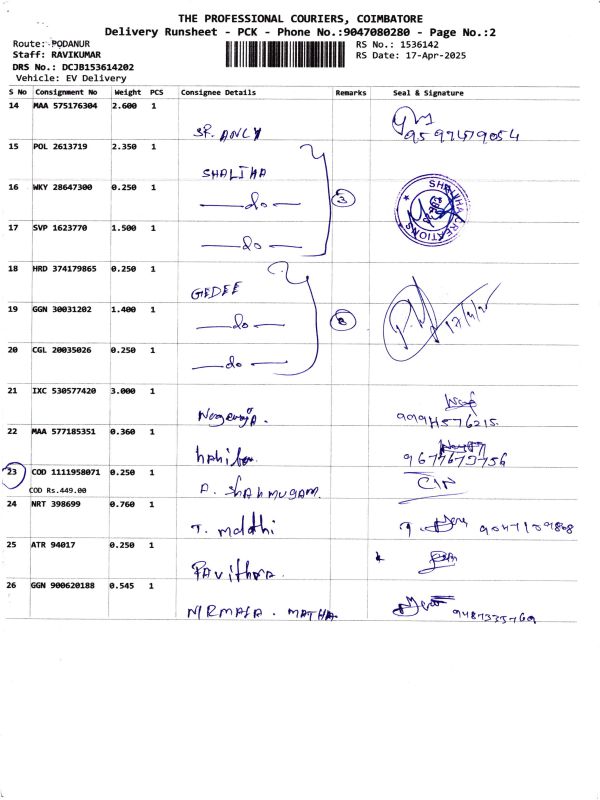 THE PROFESSIONAL COURIERS, COIMBATORE
Delivery Runsheet - PCK - Phone No.:9047080280 - Page No.:2
Route: PODANUR
RS No.: 1536142
Staff: RAVIKUMAR
RS Date: 17-Apr-2025
DRS No.: DCJB153614202
Vehicle: EV Delivery
S No Consignment No Weight PCS Consignee Details Remarks Seal & Signature
14 MAA 575176304 2.600 1
SR. ANCY
15 POL 2613719 2.350 1
SHALIHA
16 WKY 28647300 0.250 1
do 3
17 SVP 1623770 1.500 1
do
18 HRD 374179865 0.250 1
GEDEE
19 GGN 30031202 1.400 1
do 17/4/25
20 CGL 20035026 0.250 1
do
21 IXC 530577420 3.000 1
22 MAA 577185351 0.360 1
9677675756
23 COD 1111958071 0.250 1
COD Rs.449.00
A. SHANMUGAM.
24 NRT 398699 0.760 1
T. malathi 9047109808
25 ATR 94017 0.250 1
Pavithra.
26 GGN 900620188 0.545 1
NIRMALA. MATHA